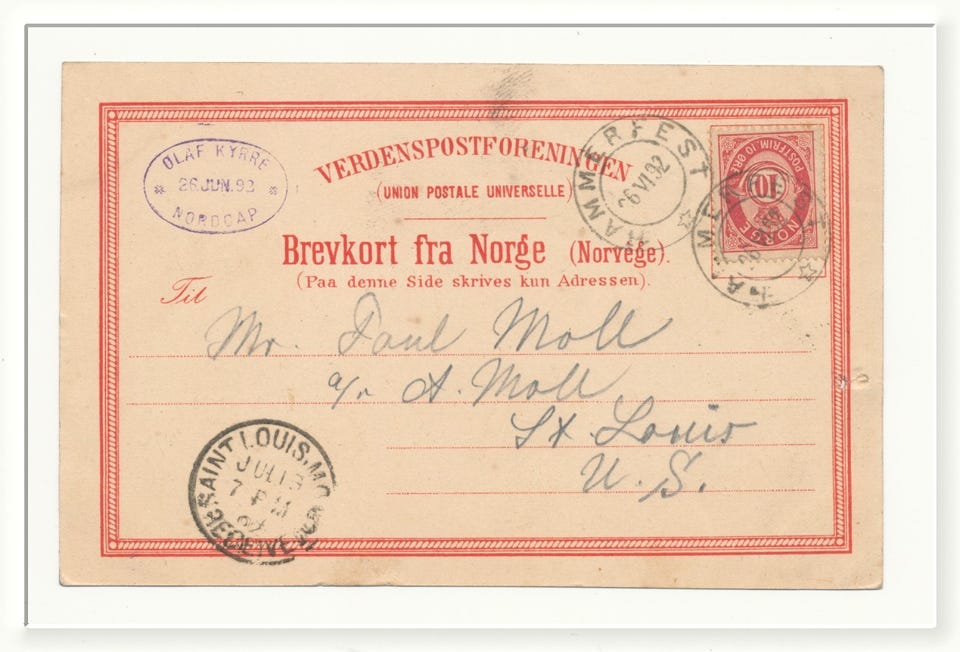 OLAF KYRRE
26 JUN. 92
NORDCAP
VERDENSPOSTFORENINGEN
(UNION POSTALE UNIVERSELLE)
Brevkort fra Norge (Norvege).
(Paa denne Side skrives kun Adressen).
HAMMERFEST
26 VI 92
POSTFRIM. 10 ØRE
10
NORGE
Til
Mr. Paul Moll
A. Moll
St Louis
U. S.
SAINT LOUIS, MO.
JUL 13
7 PM
92
RECEIVED